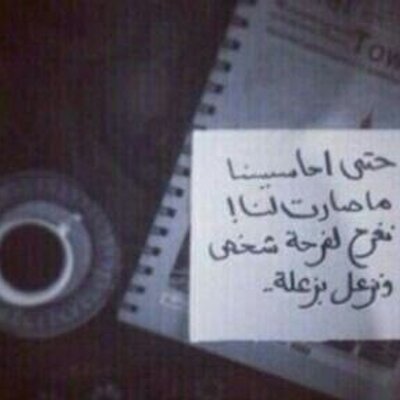 Tow
حتى احاسيسنا
ما صارت لنا!
نفرح لفرحة شخص
ونزعل بزعلة..